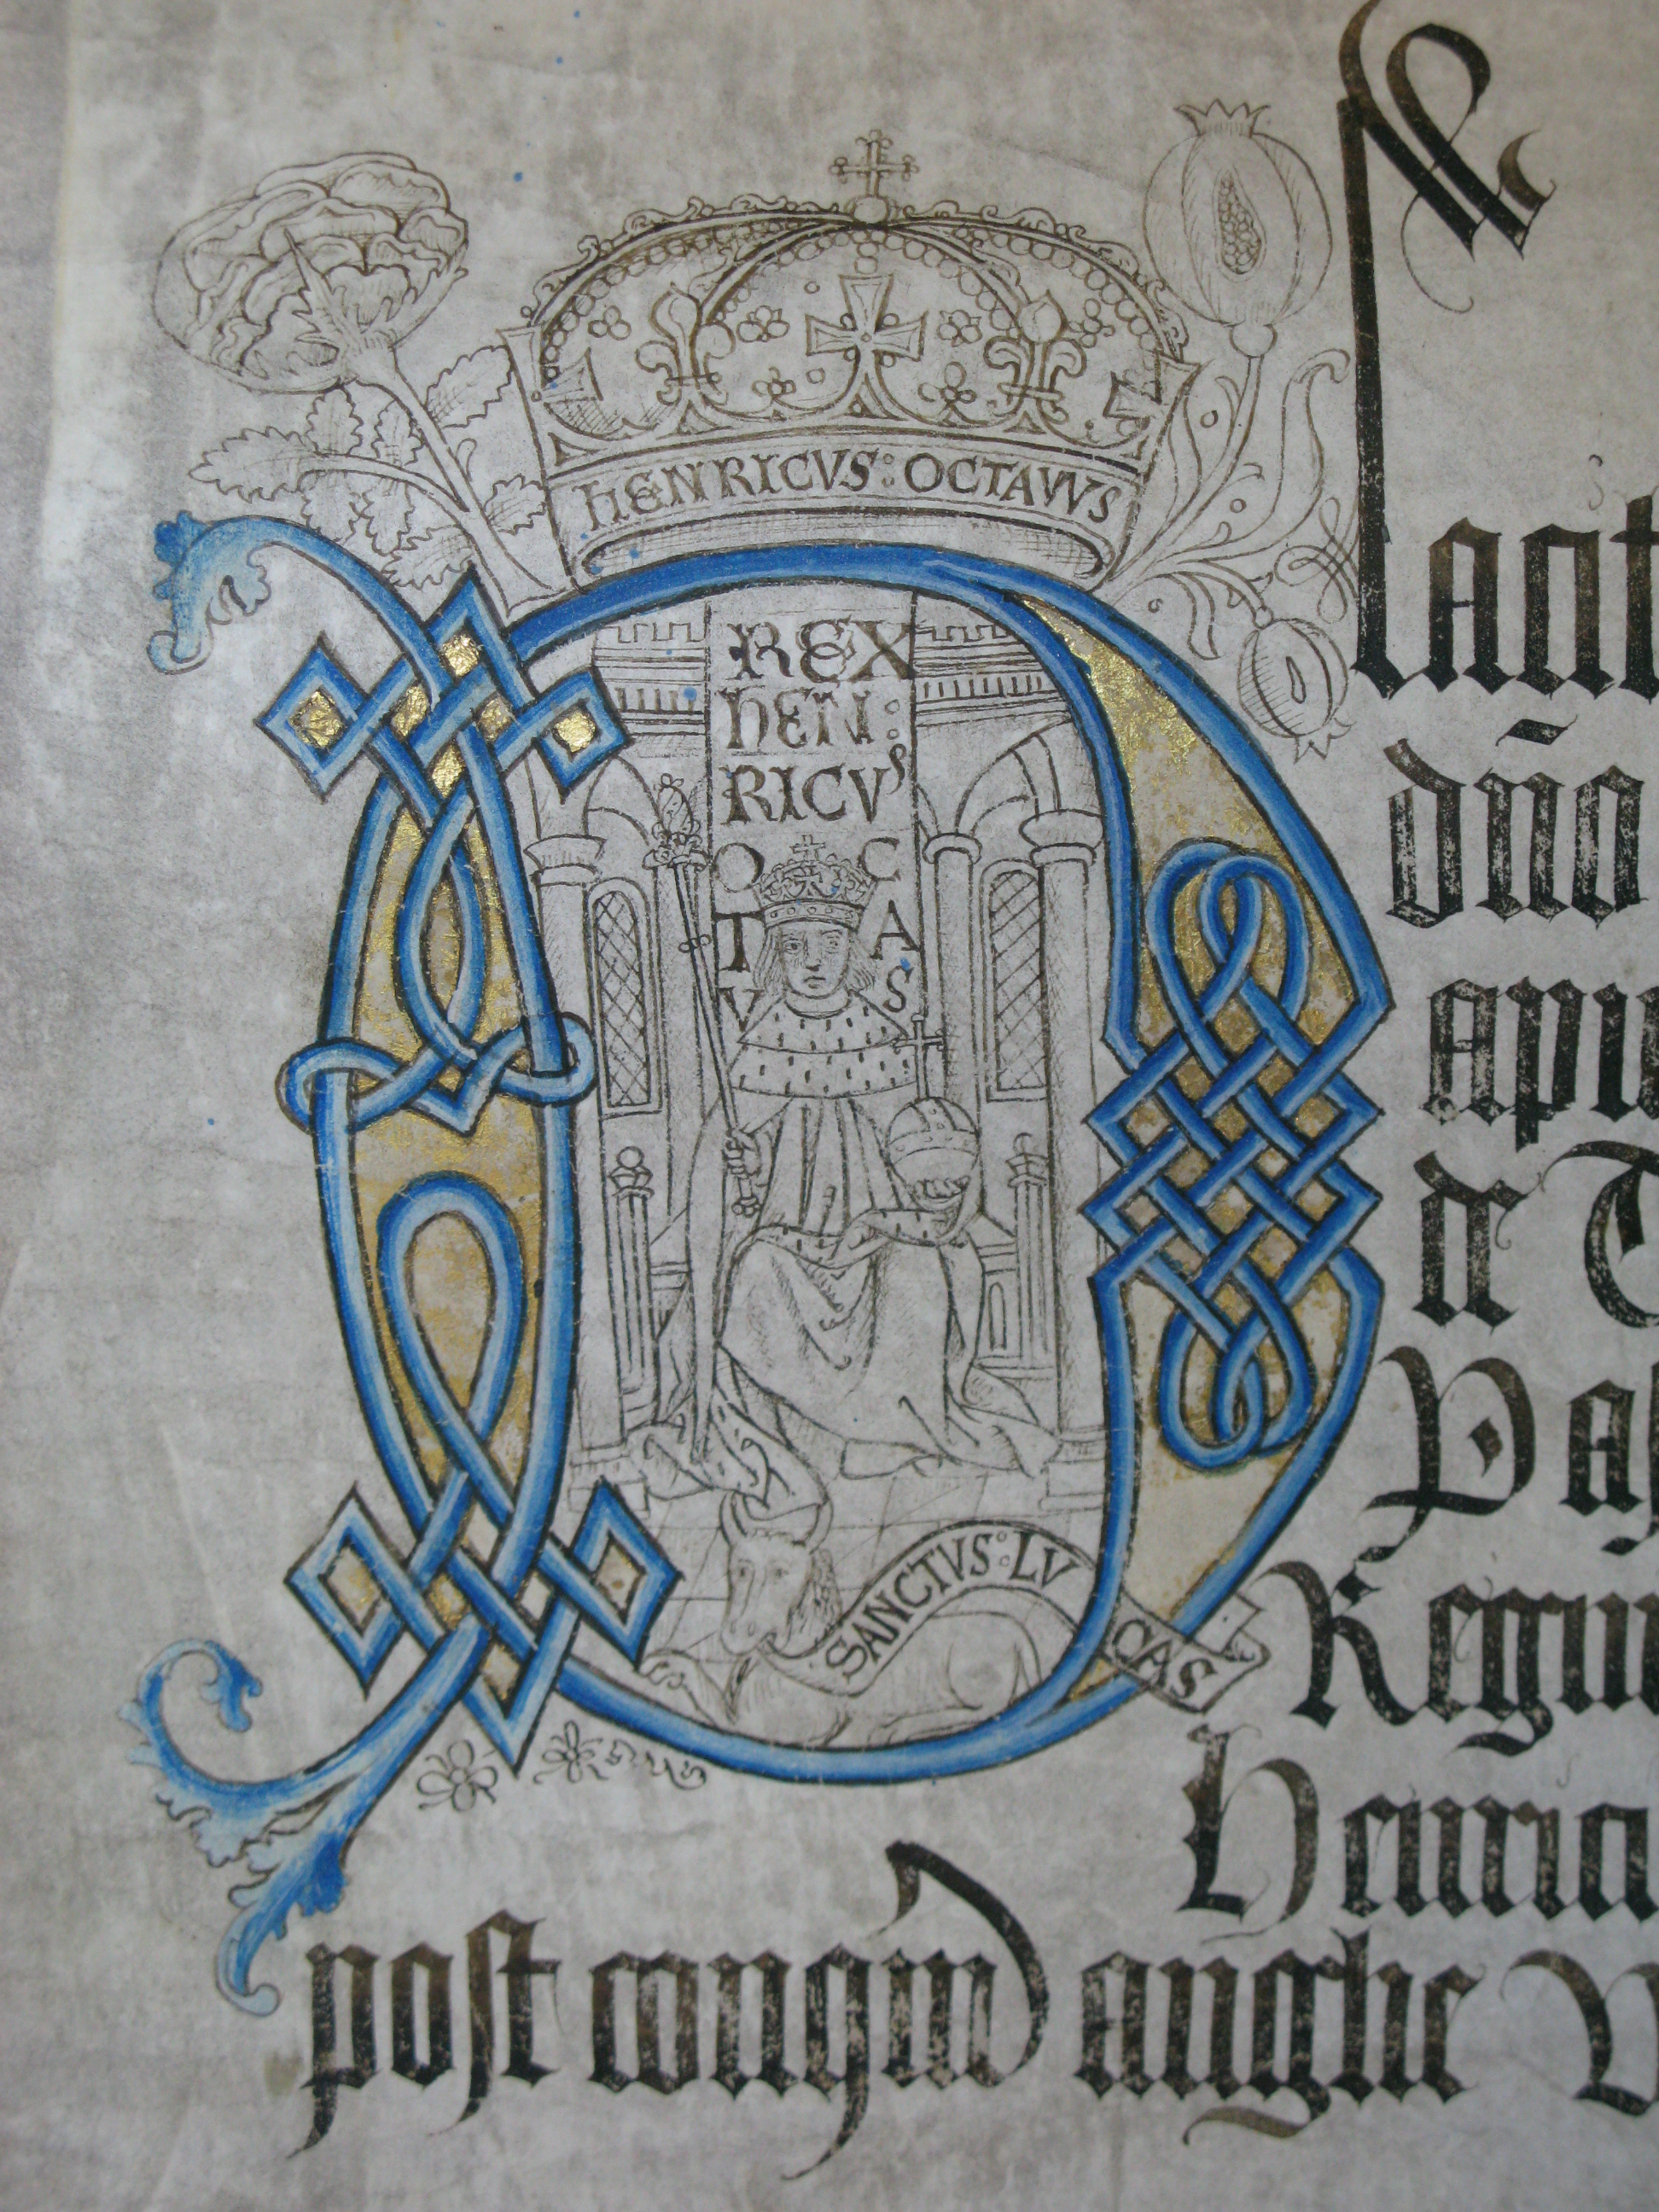 HENRICVS : OCTAVVS
REX
HEN :
RICVS
O C
T A
V S
SANCTVS : LVCAS
dño
apu
de T
Pas
Regni
Henrici
post conqm anglie